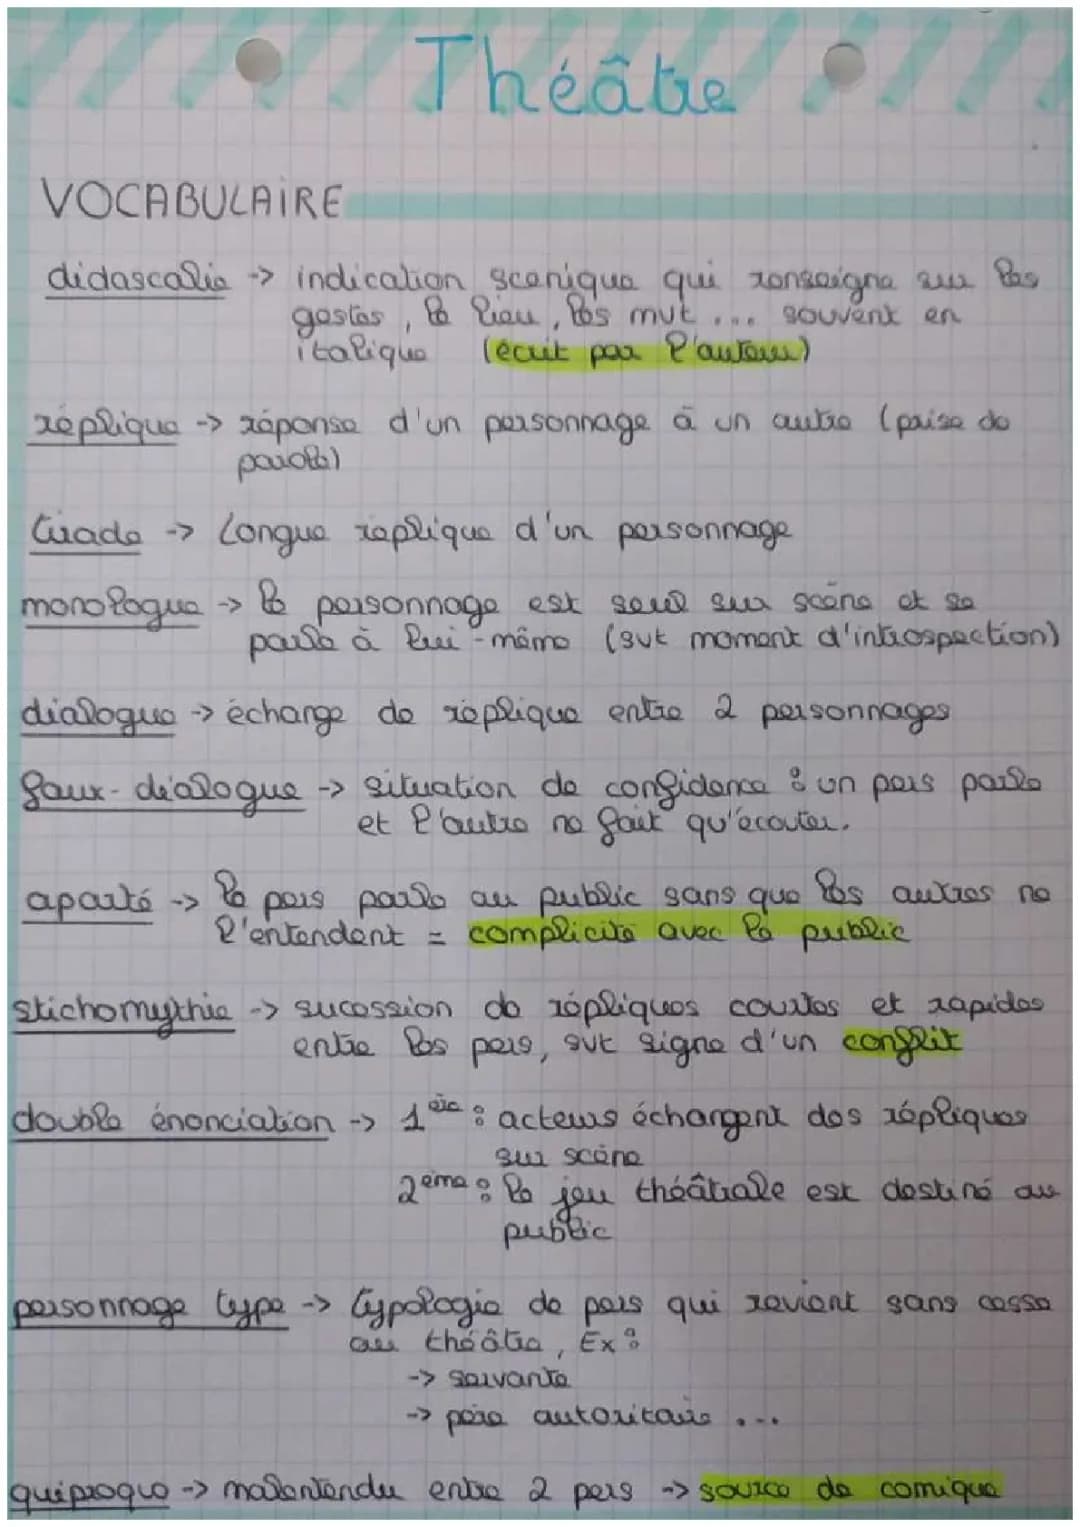 Théâtre
VOCABULAIRE
didascalie -> indication scenique qui renseigne sur les
gestes, le lieu, les mvt ... souvent en
italique (écrit par l'auteur)
réplique -> réponse d'un personnage à un autre (prise de
parole)
tirade -> Longue replique d'un personnage
monologue -> le personnage est seul sur scène et se
parle à lui-même (svt moment d'introspection)
dialogue -> échange de réplique entre 2 personnages
faux-dialogue -> situation de confidence : un pers parle
et l'autre ne fait qu'écouter.
aparté -> le pers parle au public sans que les autres ne
l'entendent = complicité avec le public
stichomythie -> sucession de répliques courtes et rapides
entre les pers, svt signe d'un conflit
double énonciation -> 1ère : acteurs échangent des répliques
sur scène
2ème : le jeu théâtrale est destiné au
public
personnage type -> typologie de pers qui revient sans cesse
au théâtre, Ex :
-> servante
-> père autoritaire ...
quiproquo -> malentendu entre 2 pers -> source de comique